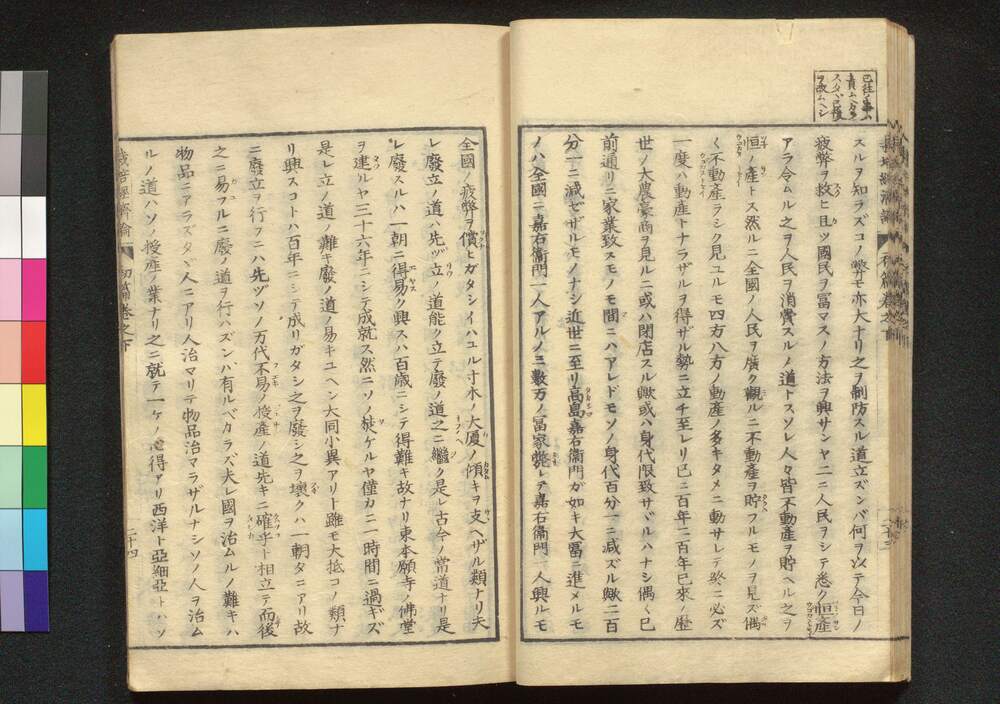 已往ノ事ハ
責ムベカラ
ズタヾ已後
ヲ改ムベシ
スルヲ知ラズコノ弊モ亦大ナリ之ヲ制防スル道立ズンバ何ヲ以テ今日ノ
疲弊ヲ救ヒ且ツ國民ヲ冨マスノ方法ヲ興サンヤ二ニ人民ヲシテ悉ク恒産
アラ令ムル之ヲ人民ヲ消費スルノ道トスソレ人々皆不動産ヲ貯ヘル之ヲ
恒ノ産トス然ルニ全國ノ人民ヲ廣ク觀ルニ不動産ヲ貯フルモノヲ見ズ偶
ク不動産ラシク見ユルモ四方八方ノ動産ノ多キタメニ動サレテ終ニ必ズ
一度ハ動産トナラザルヲ得ザル勢ニ立チ至レリ已ニ百年二百年已來ノ歴
世ノ大農豪商ヲ見ルニ或ハ閉店スル歟或ハ身代限致サヾルハナシ偶ク已
前通リニ家業致スモノモ間ニハアレドモソノ身代百分一ニ減ズル歟二百
分一ニ減ゼザルモノナシ近世ニ至リ高島嘉右衞門ガ如キ大冨ニ進メルモ
ノハ全國ニ嘉右衞門一人アルノミ數万ノ冨家斃レテ嘉右衞門一人興ルモ
全國ノ疲弊ヲ償ヒガタシイハユル寸木ノ大廈ノ傾キヲ支ヘザル類ナリ夫
レ廢立ノ道ハ先ヅ立ノ道能ク立テ廢ノ道之ニ繼ク是レ古今ノ常道ナリ是
レ廢スルハ一朝ニ得易ク興スハ百歳ニシテ得難キ故ナリ東本願寺ノ佛堂
ヲ建ルヤ三十六年ニシテ成就ス然ニソノ焚ケルヤ僅カニ一時間ニ過ギズ
是レ立ノ道ノ難キ廢ノ道ノ易キユヘン大同小異アリト雖モ大抵コノ類ナ
リ興スコトハ百年ニシテ成リガタシ之ヲ廢シ之ヲ壞クハ一朝タニアリ故
ニ廢立ヲ行フニハ先ヅソノ万代不易ノ授産ノ道先キニ確乎ト相立テ而後
之ニ易フルニ廢ノ道ヲ行ハズンバ有ルベカラズ夫レ國ヲ治ムルノ難キハ
物品ニアラズタヾ人ニアリ人治マリテ物品治マラザルナシソノ人ヲ治ム
ルノ道ハソノ授産ノ業ナリ之ニ就テ一ケノ心得アリ西洋ト亞細亞トハソ
初篇卷之下
二十四